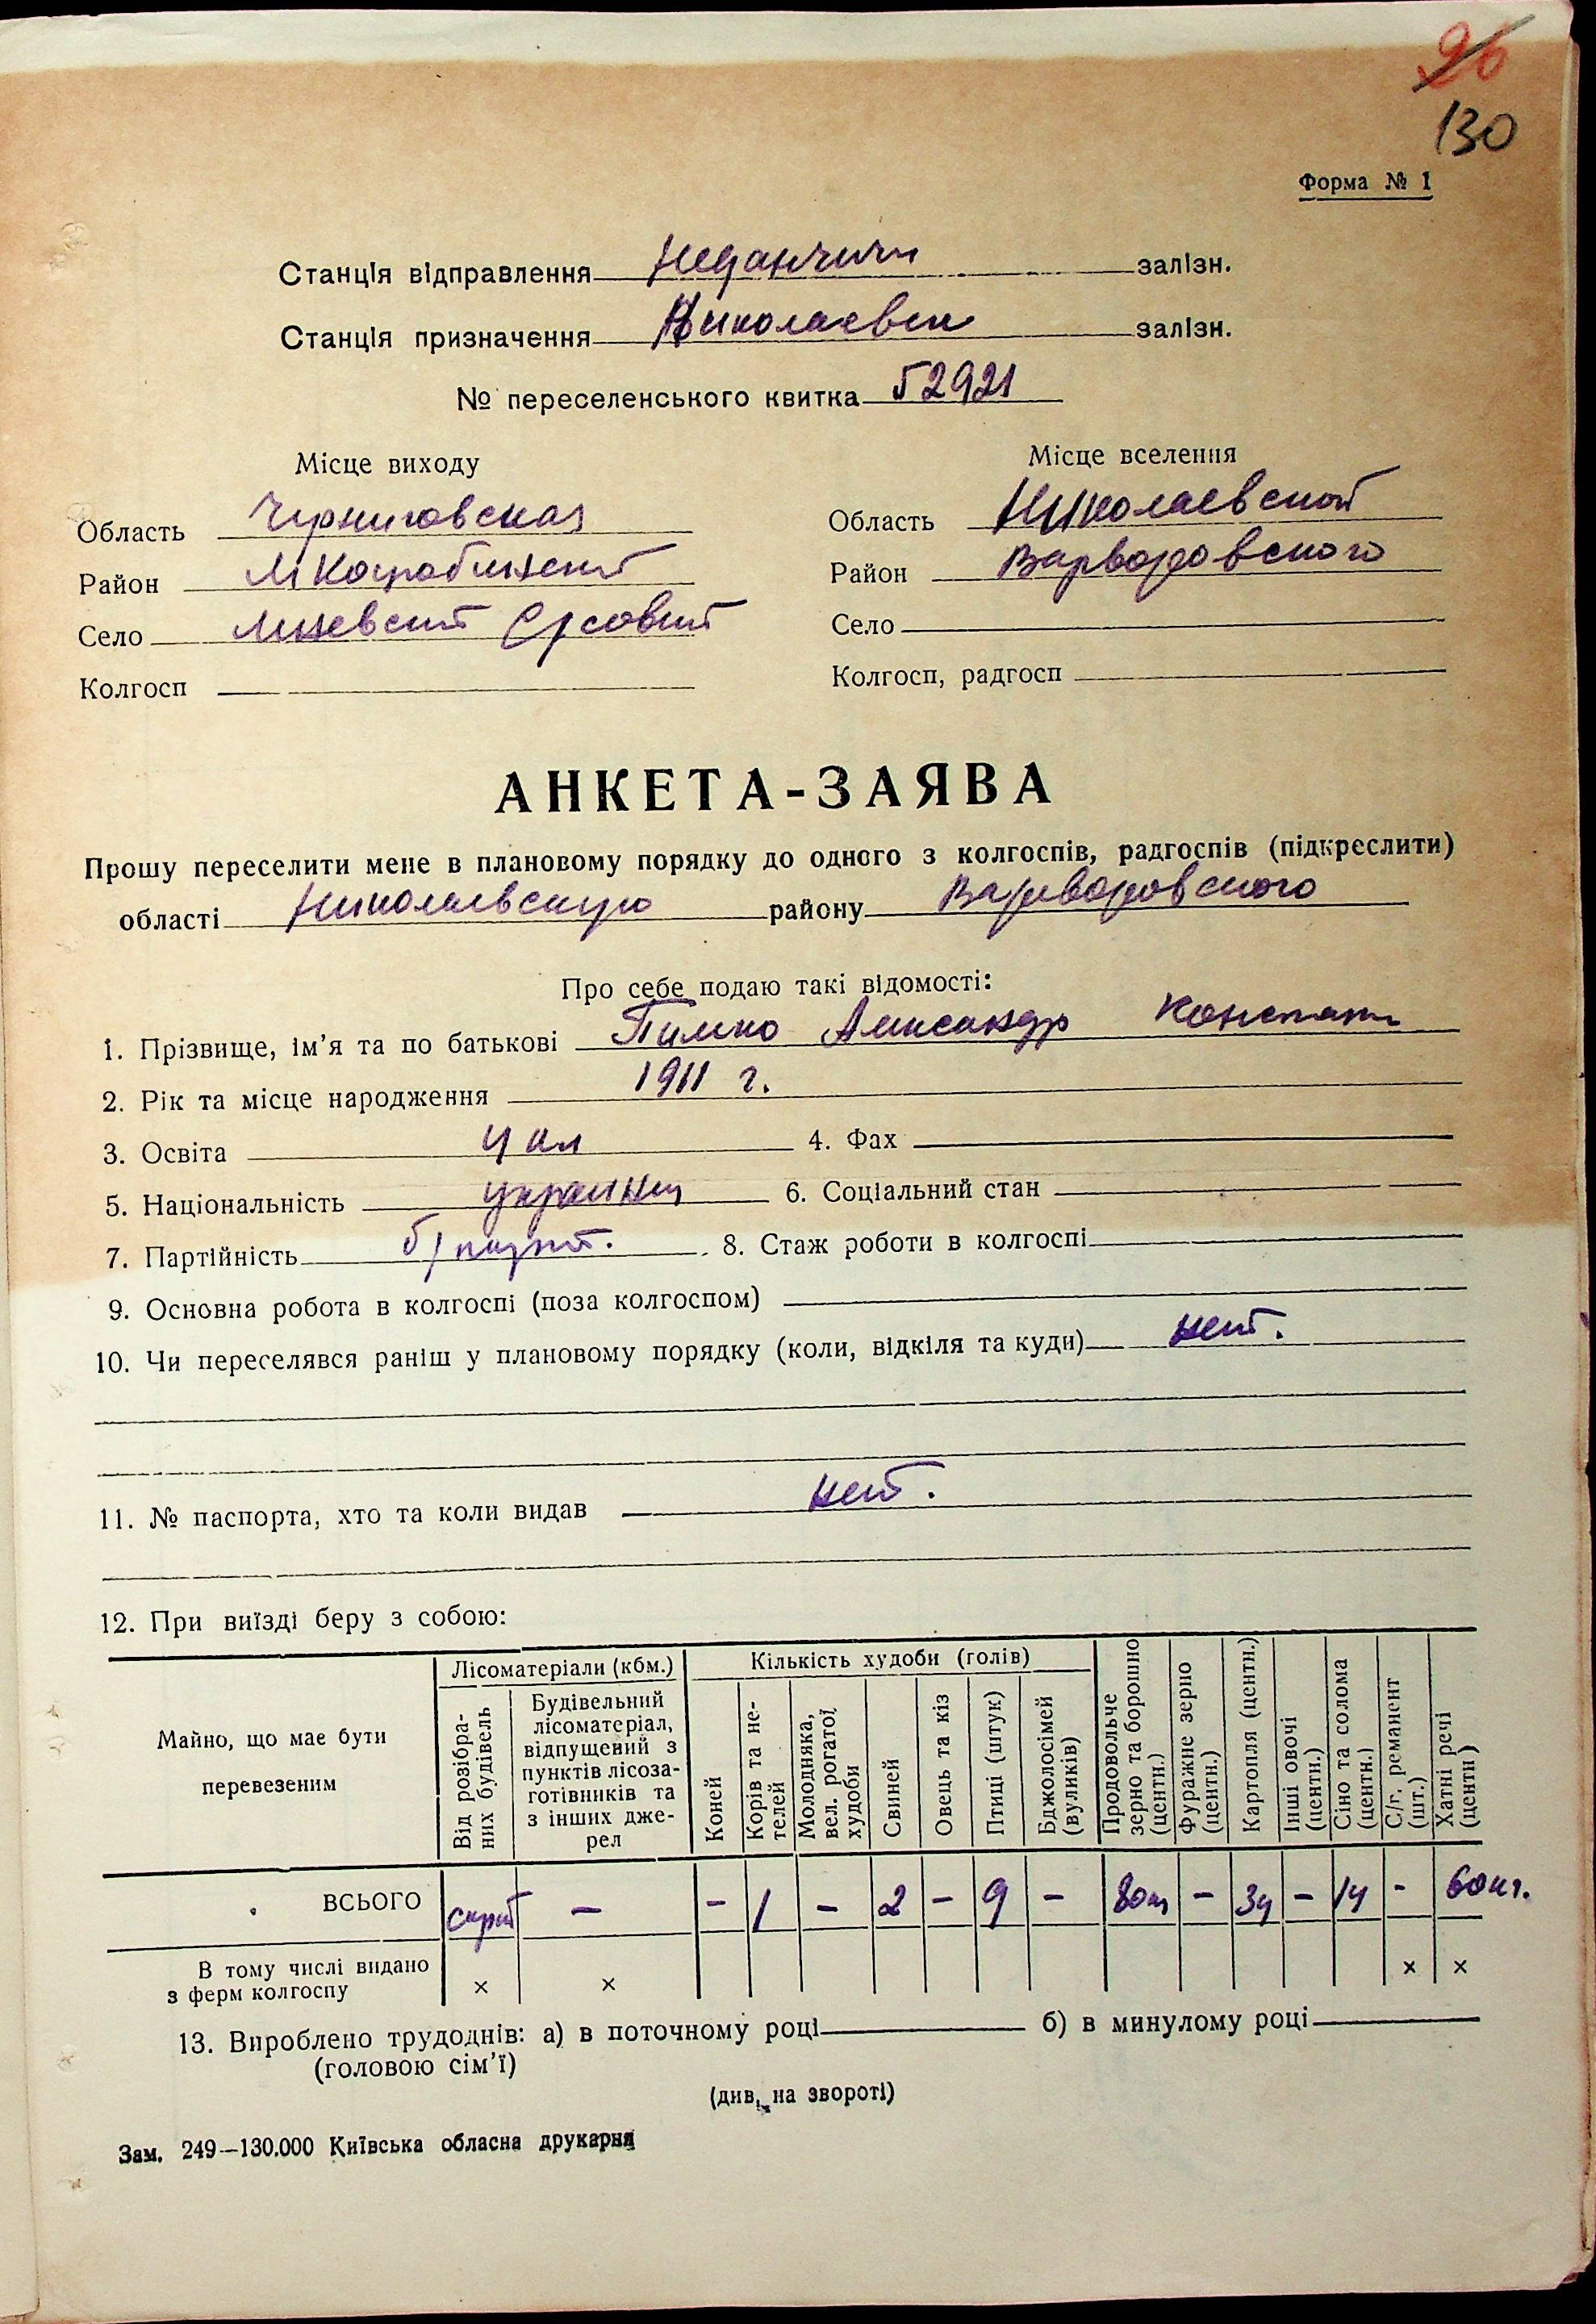 26
130
Форма № 1
Станція відправлення Неданчичи залізн.
Станція призначення Николаевск залізн.
№ переселенського квитка 52921
Місце виходу
Місце вселення
Область Черниговская
Область Николаевской
Район МКоцюбинский
Район Варваровского
Село
Село
Колгосп
Колгосп, радгосп
АНКЕТА-ЗАЯВА
Прошу переселити мене в плановому порядку до одного з колгоспів, радгоспів (підкреслити)
області Николаевскую району Варваровского
Про себе подаю такі відомості:
1. Прізвище, ім'я та по батькові Пимко Александр Констант
2. Рік та місце народження 1911 г.
3. Освіта 4 кл 4. Фах
5. Національність украинец 6. Соціальний стан
7. Партійність б/парт. 8. Стаж роботи в колгоспі
9. Основна робота в колгоспі (поза колгоспом)
10. Чи переселявся раніш у плановому порядку (коли, відкіля та куди) нет.
11. № паспорта, хто та коли видав нет.
12. При виїзді беру з собою:
Майно, що має бути перевезеним
Лісоматеріали (кбм.)
Від розібра-
них будівель
Будівельний
лісоматеріал,
відпущений з
пунктів лісоза-
готівників та
з інших дже-
рел
Кількість худоби (голів)
Коней
Корів та не-
телей
Молодняка,
вел. рогатої
худоби
Свиней
Овець та кіз
Птиці (штук)
Бджолосімей
(вуликів)
Продовольче
зерно та борошно
(центн.)
Фуражне зерно
(центн.)
Картопля (центн.)
Інші овочі
(центн.)
Сіно та солома
(центн.)
С/г. реманент
(шт.)
Хатні речі
(центн)
ВСЬОГО - - 1 - 2 - 9 - - 3ц - 1ч - 60кг.
В тому числі видано × × × ×
з ферм колгоспу
13. Вироблено трудоднів: а) в поточному році б) в минулому році
(головою сім'ї)
(див. на звороті)
Зам. 249—130.000 Київська обласна друкарня